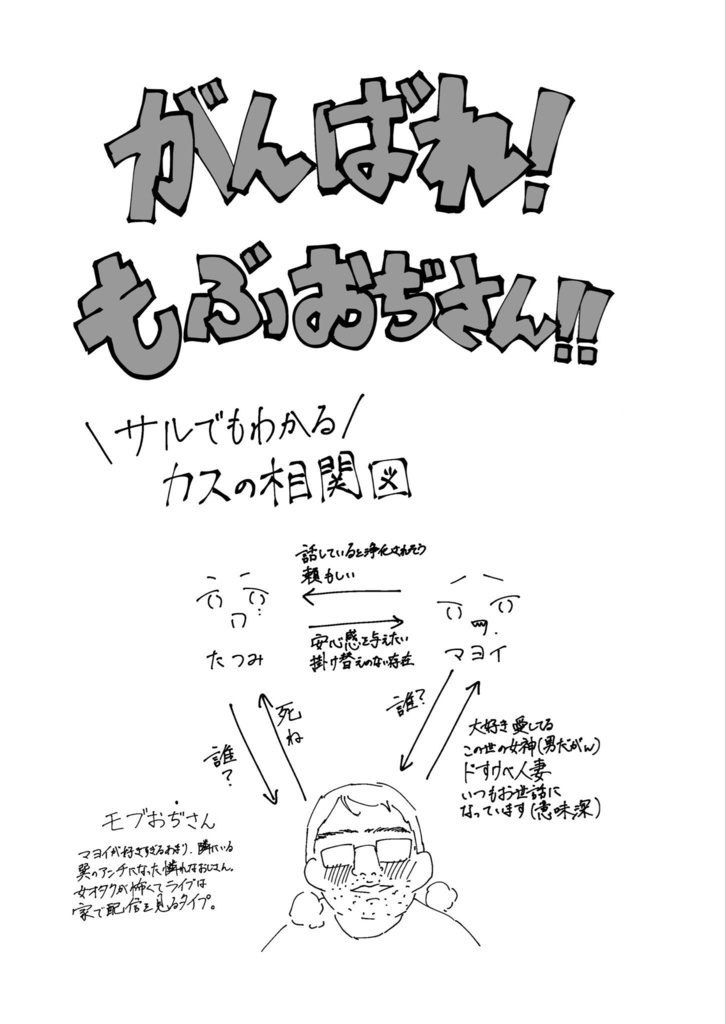 がんばれ!
もぶおぢさん!!
\サルでもわかる/
カスの相関図
話していると浄化されそう
頼もしい
安心感を与えたい
掛け替えのない存在
たつみ
マヨイ
誰?
死ね
誰?
大好き愛してる
この世の女神(男だがん)
ドすけべ人妻
いつもお世話に
なっています(意味深)
モブおぢさん
マヨイが好きすぎるあまり、隣にいる
巽のアンチになった憐れなおじさん。
女オタクが怖くてライブは
家で配信を見るタイプ。